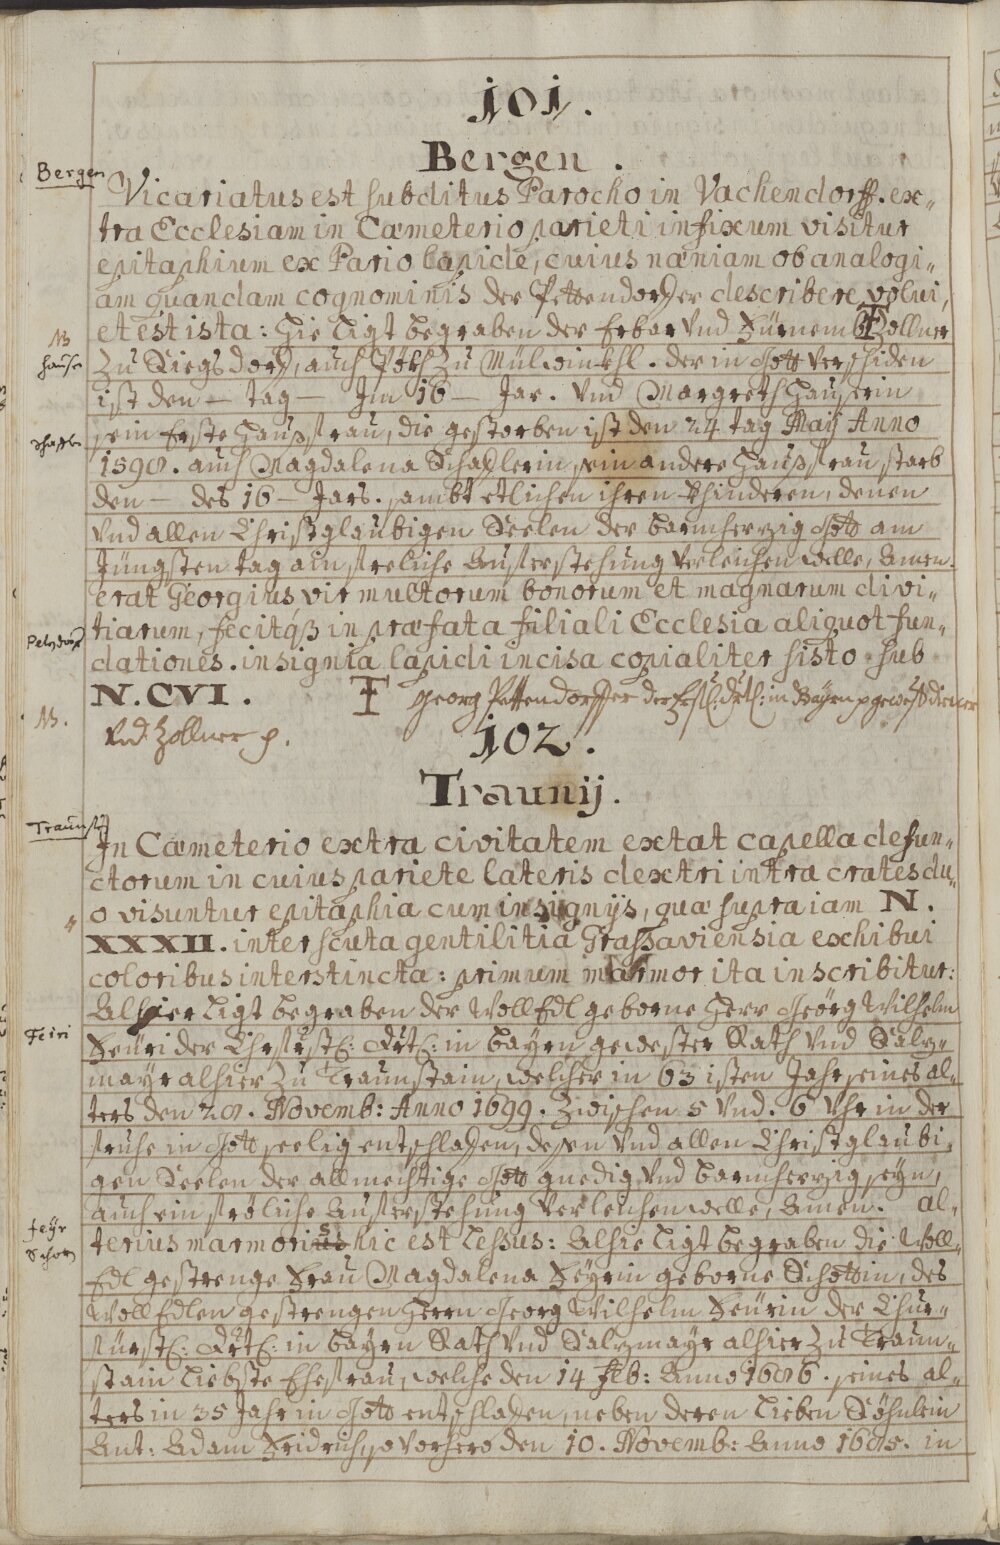 101.
Bergen.
Bergen
Vicariatus est subditus Parocho in Vachendorff. ex„
tra Ecclesiam in Cæmeterio parieti infixum visitur
epitaphium ex Pario lapide, cuius næniam ob analogi„
am quandam cognominis der Pettendorfer describere volui,
et est ista: Hie Ligt begraben der Erbar Vnd Fürnem Zollner
NB
hauser
Zu Siegsdorf, auch Zu Mülwinkhl. der in Gott Verschiden
ist den — tag — Im 16 — Jar. Vnd Margreth Hauserin
schafler
sein Erste Haußfrau, die gestorben ist den 24 tag Maij Anno
1598. auch Magdalena Schaflerin sein andere Haußfrau starb
den — des 16 — Jars. sambt etlichen ihren Khinderen, denen
Vnd allen Christglaubigen Seelen der barmherzig Gott am
Jüngsten tag ain freliche Aufferstehung Verleichen welle, Amen.
erat Georgius vir multorum bonorum et magnarum divi„
tiarum, fecitqß in præfata filiali Ecclesia aliquot fun„
Petendorf
dationes. insignia lapidi incisa copialiter sisto sub
N. CVI. Georg Pettendorffer der in Bayrn gewest diener
NB.
Vnd Zollner p.
102.
Traunij.
Traunst
In Cæmeterio extra civitatem extat capella defun„
ctorum in cuius pariete lateris dextri intra crates du„
o visuntur epitaphia cum insignijs, quæ supra iam N.
XXXII. inter scuta gentilitia Grassaviensia exhibui
coloribus interstincta: primum marmor ita inscribitur:
Alhier Ligt begraben der WollEdl geborne Herr Georg Wilhelm
Feiri
Feüri der Chrfrstl: Drtl: in bayrn gewester Rath Vnd Salz„
mayr alhier Zu Traunstain, welcher in 63 isten Jahr seines al„
ters den 28. Novemb: Anno 1699. Zwischen 5 Vnd. 6 Vhr in der
fruhe in Gott seelig entschlafen, desen Vnd allen Christglaubi„
gen Seelen der allmechtige Gott gnedig Vnd barmherzig seyn,
auch ein fröliche Aufferstehung Verleichen welle, Amen. al„
feyr
Schottn
terius marmoris hic est Lessus: Alhie Ligt begraben die Woll„
Edl gestrenge Frau Magdalena Feyrin geborne Schottin, des
WollEdlen gestrengen Herrn Georg Wilhelm Feürin der Chur„
fürstl: Drtl: in bayrn Rath Vnd Salzmayr alhier Zu Traun„
stain Liebste Ehefrau, welche den 14 Feb: Anno 1686. seines al„
ters in 35 Jahr in Gott entschlafen, neben deren Lieben Söhnlein
Ant: Adam Fridrich, so Vorhero den 10. Novemb: Anno 1685. in